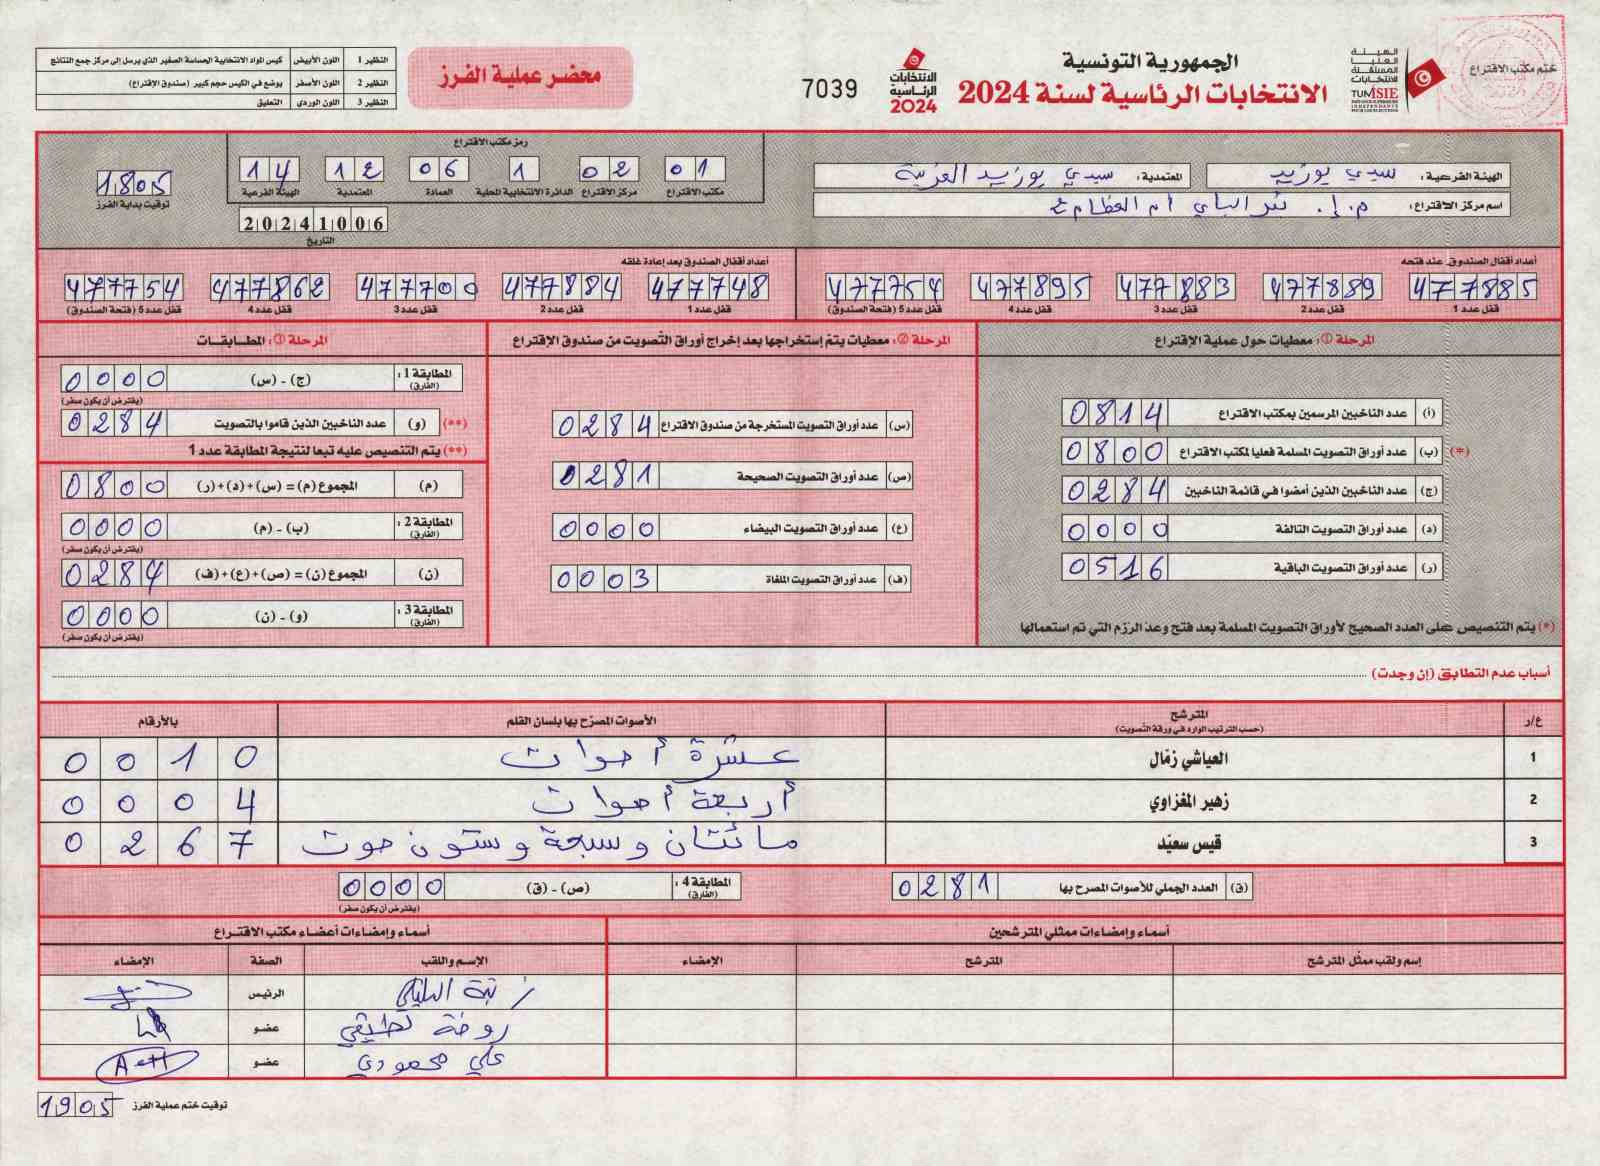 ختم مكتب الاقتراع
الهيئة العليا المستقلة للانتخابات
TUNISIE
الجمهورية التونسية
الانتخابات الرئاسية لسنة 2024
الانتخابات الرئاسية 2024
7039
محضر عملية الفرز
النظير 1 اللون الأبيض كيس المواد الانتخابية الحساسة الصغير الذي يرسل إلى مركز جمع النتائج
النظير 2 اللون الأصفر يوضع في الكيس حجم كبير (صندوق الاقتراع)
النظير 3 اللون الوردي التعليق
الهيئة الفرعية: سيدي بوزيد
المعتمدية: سيدي بوزيد الغربية
اسم مركز الاقتراع: م.إ.
رمز مكتب الاقتراع
01 02 1 06 12 14
مكتب الاقتراع مركز الاقتراع الدائرة الانتخابية المحلية العمادة المعتمدية الهيئة الفرعية
20241006
التاريخ
1805
توقيت بداية الفرز
أعداد أقفال الصندوق عند فتحه
477885 477889 477883 477895 477754
قفل عدد 1 قفل عدد 2 قفل عدد 3 قفل عدد 4 قفل عدد 5 (فتحة الصندوق)
أعداد أقفال الصندوق بعد إعادة غلقه
477748 477884 477700 477862 477754
قفل عدد 1 قفل عدد 2 قفل عدد 3 قفل عدد 4 قفل عدد 5 (فتحة الصندوق)
المرحلة ①: معطيات حول عملية الإقتراع
(أ) عدد الناخبين المرسمين بمكتب الاقتراع 0814
(*) (ب) عدد أوراق التصويت المسلمة فعليا لمكتب الاقتراع 0800
(ج) عدد الناخبين الذين أمضوا في قائمة الناخبين 0284
(د) عدد أوراق التصويت التالفة 0000
(ر) عدد أوراق التصويت الباقية 0516
(*) يتم التنصيص على العدد الصحيح لأوراق التصويت المسلمة بعد فتح وعد الرزم التي تم استعمالها
المرحلة ②: معطيات يتم إستخراجها بعد إخراج أوراق التصويت من صندوق الإقتراع
(س) عدد أوراق التصويت المستخرجة من صندوق الاقتراع 0284
(ص) عدد أوراق التصويت الصحيحة 0281
(ع) عدد أوراق التصويت البيضاء 0000
(ف) عدد أوراق التصويت الملغاة 0003
المرحلة ③: المطابقات
المطابقة 1: (الفارق) (ج) - (س) 0000
(يفترض أن يكون صفر)
(**) (و) عدد الناخبين الذين قاموا بالتصويت 0284
(**) يتم التنصيص عليه تبعا لنتيجة المطابقة عدد 1
(م) المجموع (م) = (س)+(د)+(ر) 0800
المطابقة 2: (الفارق) (ب) - (م) 0000
(يفترض أن يكون صفر)
(ن) المجموع (ن) = (ص)+(ع)+(ف) 0284
المطابقة 3: (الفارق) (و) - (ن) 0000
(يفترض أن يكون صفر)
أسباب عدم التطابق (إن وجدت)
ع/ر المترشح الأصوات المصرّح بها بلسان القلم بالأرقام
(حسب الترتيب الوارد في ورقة التصويت)
1 العياشي زمّال عشرة أصوات 0010
2 زهير المغزاوي أربعة أصوات 0004
3 قيس سعيّد مائتان وسبعة وستون صوت 0267
(ق) العدد الجملي للأصوات المصرح بها 0281
المطابقة 4: (الفارق) (ص) - (ق) 0000
(يفترض أن يكون صفر)
أسماء وإمضاءات ممثلي المترشحين
إسم ولقب ممثّل المترشح المترشح الإمضاء
أسماء وإمضاءات أعضاء مكتب الاقتراع
الإسم واللقب الصفة الإمضاء
الرئيس
عضو
علي محمودي عضو
توقيت ختم عملية الفرز 1905